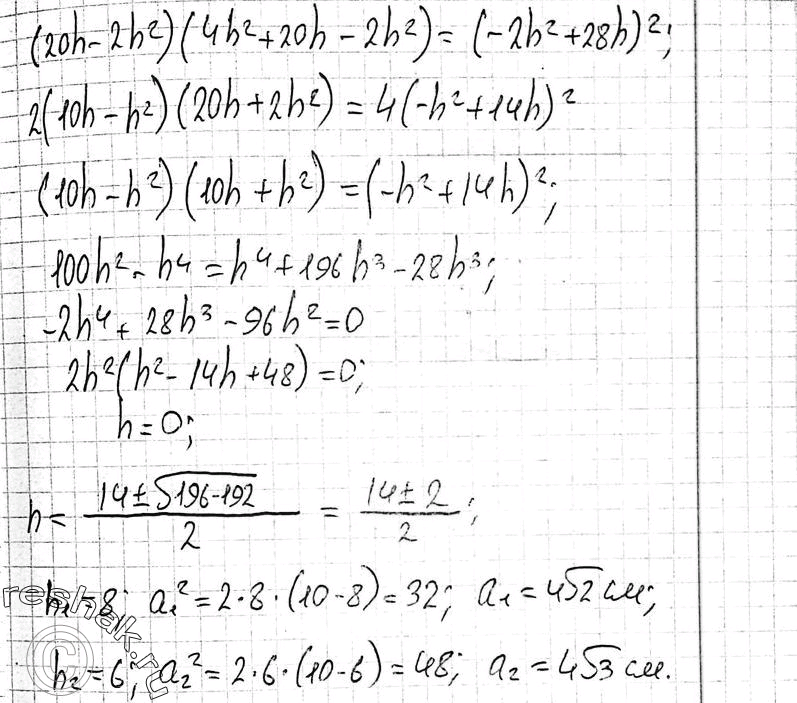 (20h - 2h²)(4h² + 20h - 2h²) = (-2h² + 28h)²;
2(10h - h²)(20h + 2h²) = 4(-h² + 14h)²
(10h - h²)(10h + h²) = (-h² + 14h)²;
100h² - h⁴ = h⁴ + 196h³ - 28h³;
-2h⁴ + 28h³ - 96h² = 0
2h²(h² - 14h + 48) = 0;
h = 0;
h = (14 ± √196-192)/2 = (14 ± 2)/2;
h₁ = 8; a₁² = 2·8·(10-8) = 32; a₁ = 4√2 см;
h₂ = 6; a₂² = 2·6·(10-6) = 48; a₂ = 4√3 см.
reshak.ru